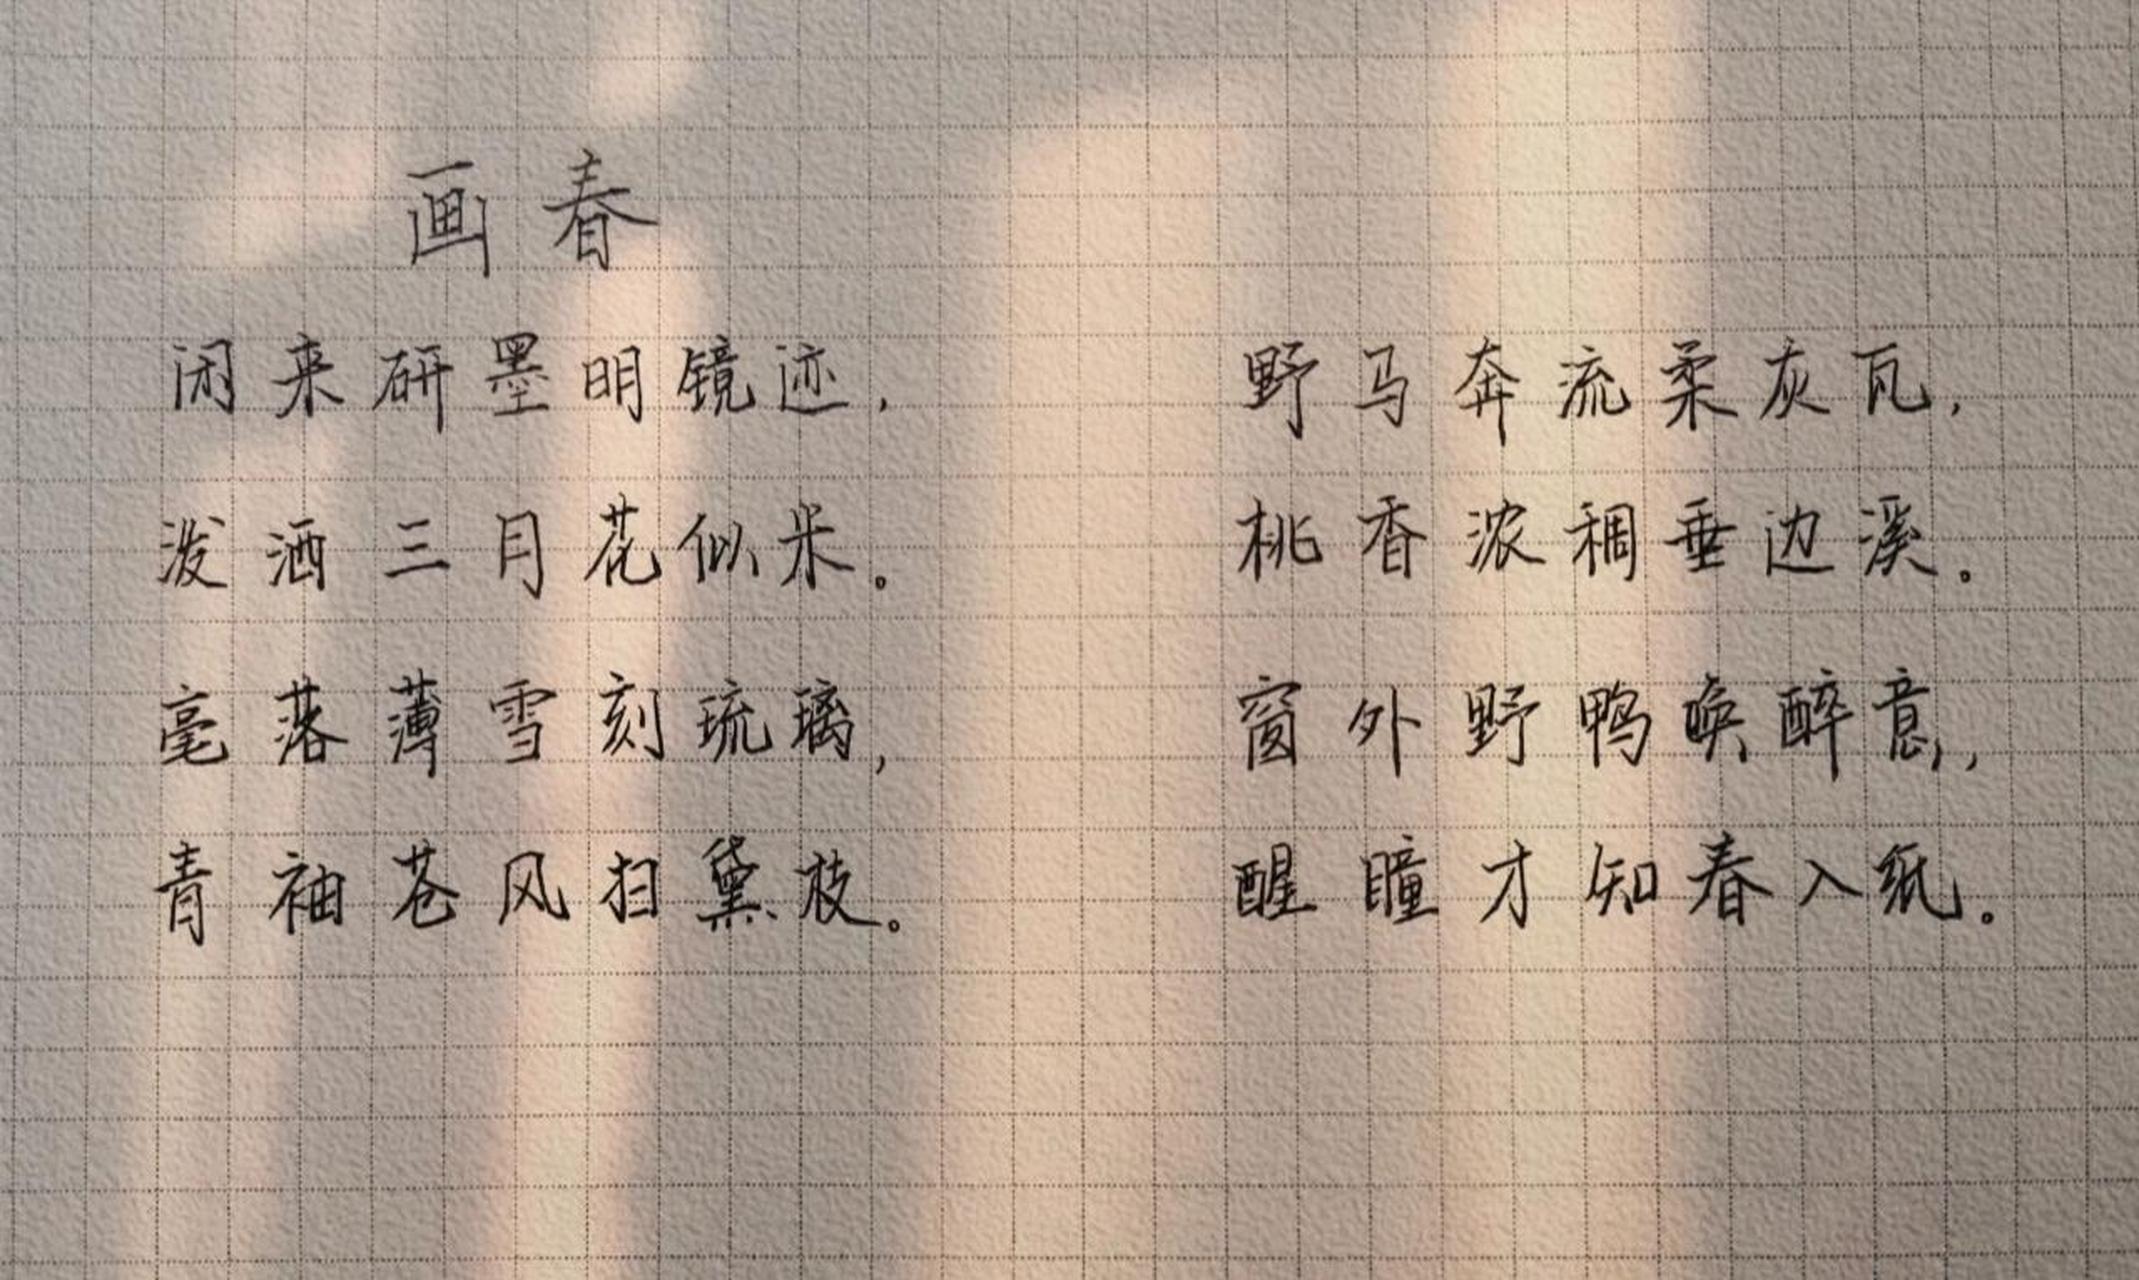 画春
闲来研墨明镜迹,
泼洒三月花似米。
毫落薄雪刻琉璃,
青袖苍风扫黛枝。
野马奔流柔灰瓦,
桃香浓稠垂边溪。
窗外野鸭唤醉意,
醒瞳才知春入纸。